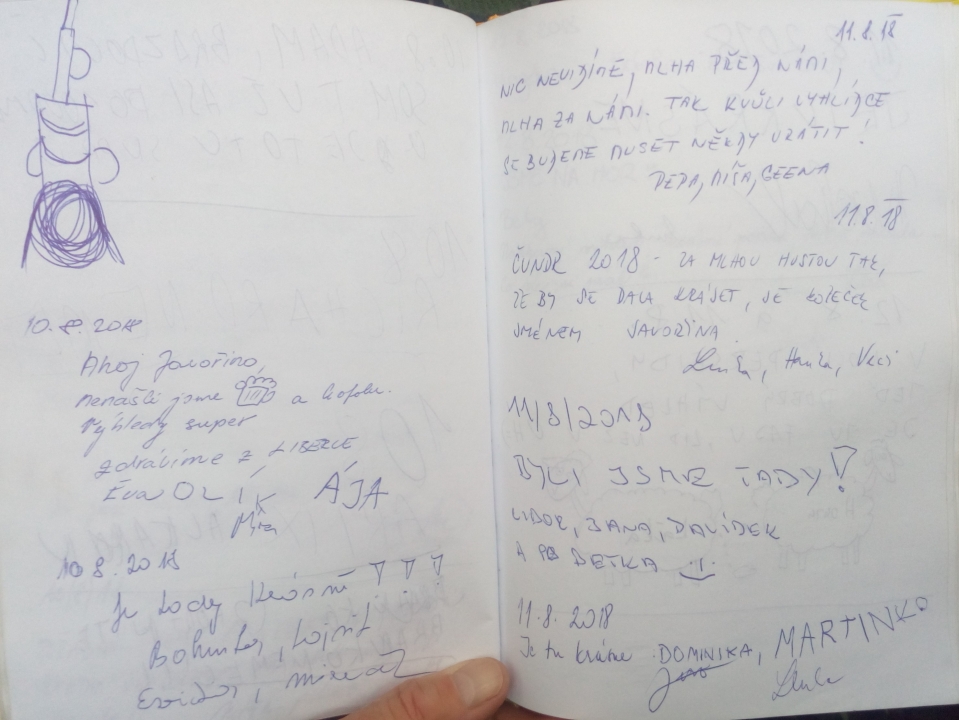 10.8.2018
Ahoj Javořino,
nenašli jsme a kofolu.
Výhledy super
zdravíme z LIBERCE
Eva OLI ÁJA
Míra
10.8.2018
Je tady krásně !!!
Bohunka, Vojtit
11.8.18
NIC NEVIDÍME, MLHA PŘED NÁMI,
MLHA ZA NÁMI. TAK KVŮLI VYHLÍDCE
SE BUDEME MUSET NĚKDY VRÁTIT!
PEPA, MÍŠA, GEENA
11.8.18
ČUNDR 2018 - ZA MLHOU HUSTOU TAK,
ŽE BY SE DALA KRÁJET, JE KOPEČEK
JMÉNEM JAVOŘINA.
Lenka, Hanka, Veci
11/8/2018
BYLI JSME TADY!
LIBOR, JANA, DAVÍDEK
A BETKA
11.8.2018
Je tu krásne DOMINIKA, MARTINKO
Lenka